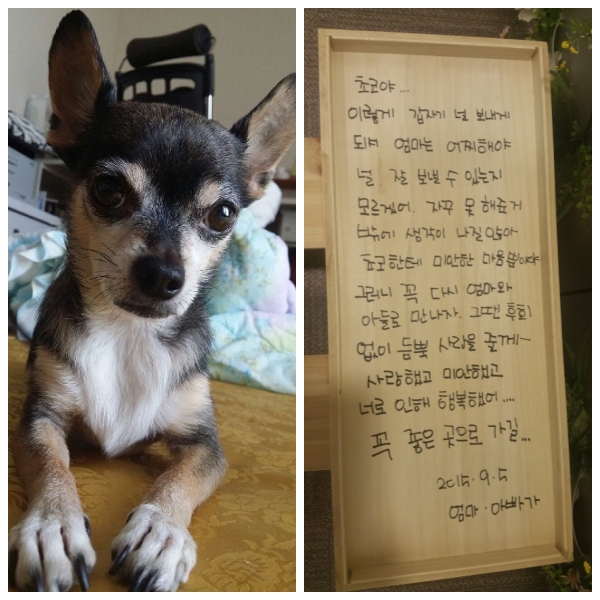 초코야...
이렇게 갑자기 널 보내게
되어 엄마는 어찌해야
널 잘 보낼 수 있는지
모르겠어. 자꾸 못 해준 거
밖에 생각이 나질 않아
초코한테 미안한 마음뿐이다
그러니 꼭 다시 엄마와
아들로 만나자. 그땐 후회
없이 듬뿍 사랑을 줄게~
사랑했고 미안했고
너로 인해 행복했어....
꼭 좋은 곳으로 가길...
2015.9.5
엄마·아빠가